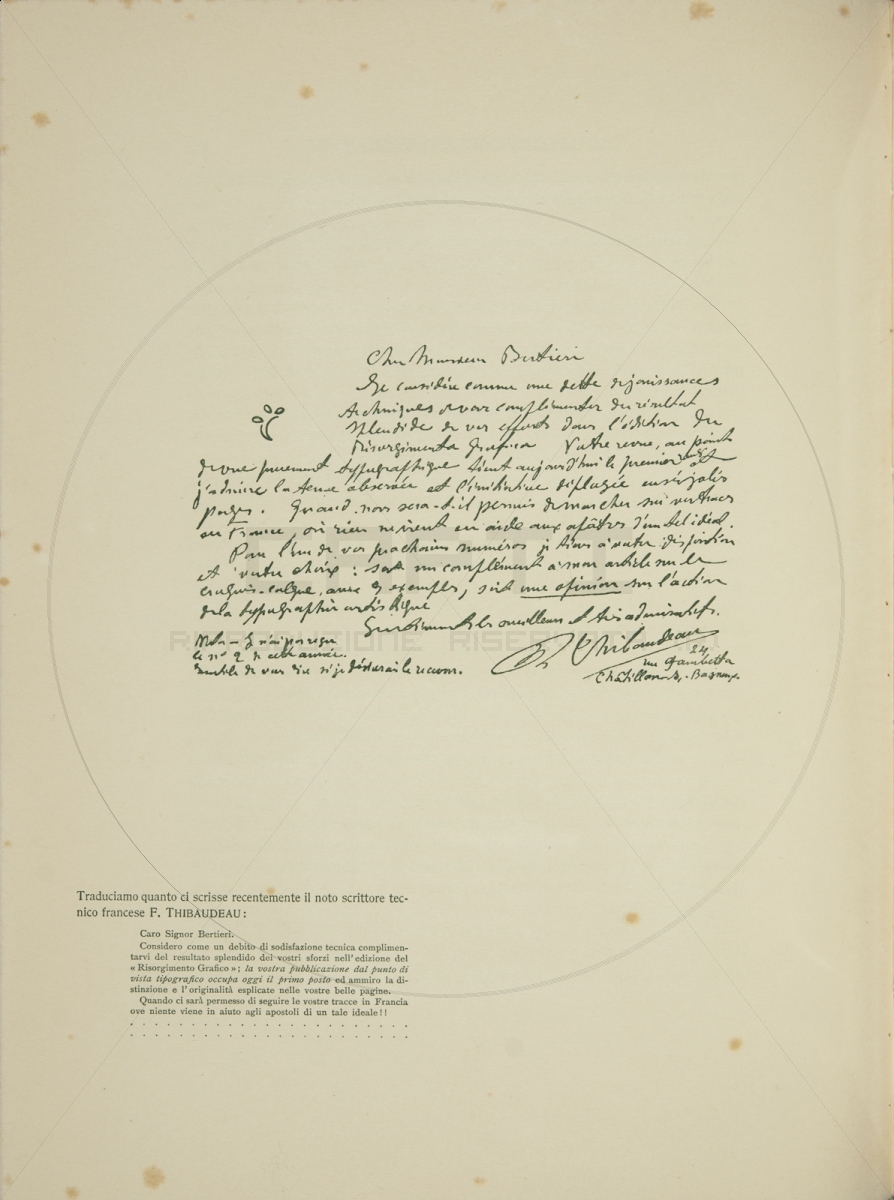 Cher Monsieur Bertieri
Je considère comme une dette de jouissances
techniques de vous complimenter du résultat
splendide de vos efforts dans l'édition du
Risorgimento Grafico Votre revue, au point
de vue purement typographique tient aujourd'hui le premier rang et
j'admire la tenue observée et l'initiative déployée en ses jolies
pages. Quand nous sera-t-il permis de marcher sur vos traces
en France, où rien ne vient en aide aux apôtres d'un tel idéal.
Pour l'un de vos prochains numéros je tiens à votre disposition
et à votre choix : soit un complément à mon article sur le
croquis-calque, avec exemples, soit une opinion sur l'action
de la typographie artistique
meilleurs et très admiratifs.
Nota - Je n'ai pas reçu
le n° 2 de cette année.
Inutile de vous dire si je désirerais le recevoir.
Thibaudeau
24,
rue Gambetta
Châtillon-s.-Bagneux
Traduciamo quanto ci scrisse recentemente il noto scrittore tec-
nico francese F. THIBAUDEAU:
Caro Signor Bertieri.
Considero come un debito di sodisfazione tecnica complimen-
tarvi del resultato splendido dei vostri sforzi nell'edizione del
« Risorgimento Grafico »; la vostra pubblicazione dal punto di
vista tipografico occupa oggi il primo posto ed ammiro la di-
stinzione e l'originalità esplicate nelle vostre belle pagine.
Quando ci sarà permesso di seguire le vostre tracce in Francia
ove niente viene in aiuto agli apostoli di un tale ideale!!